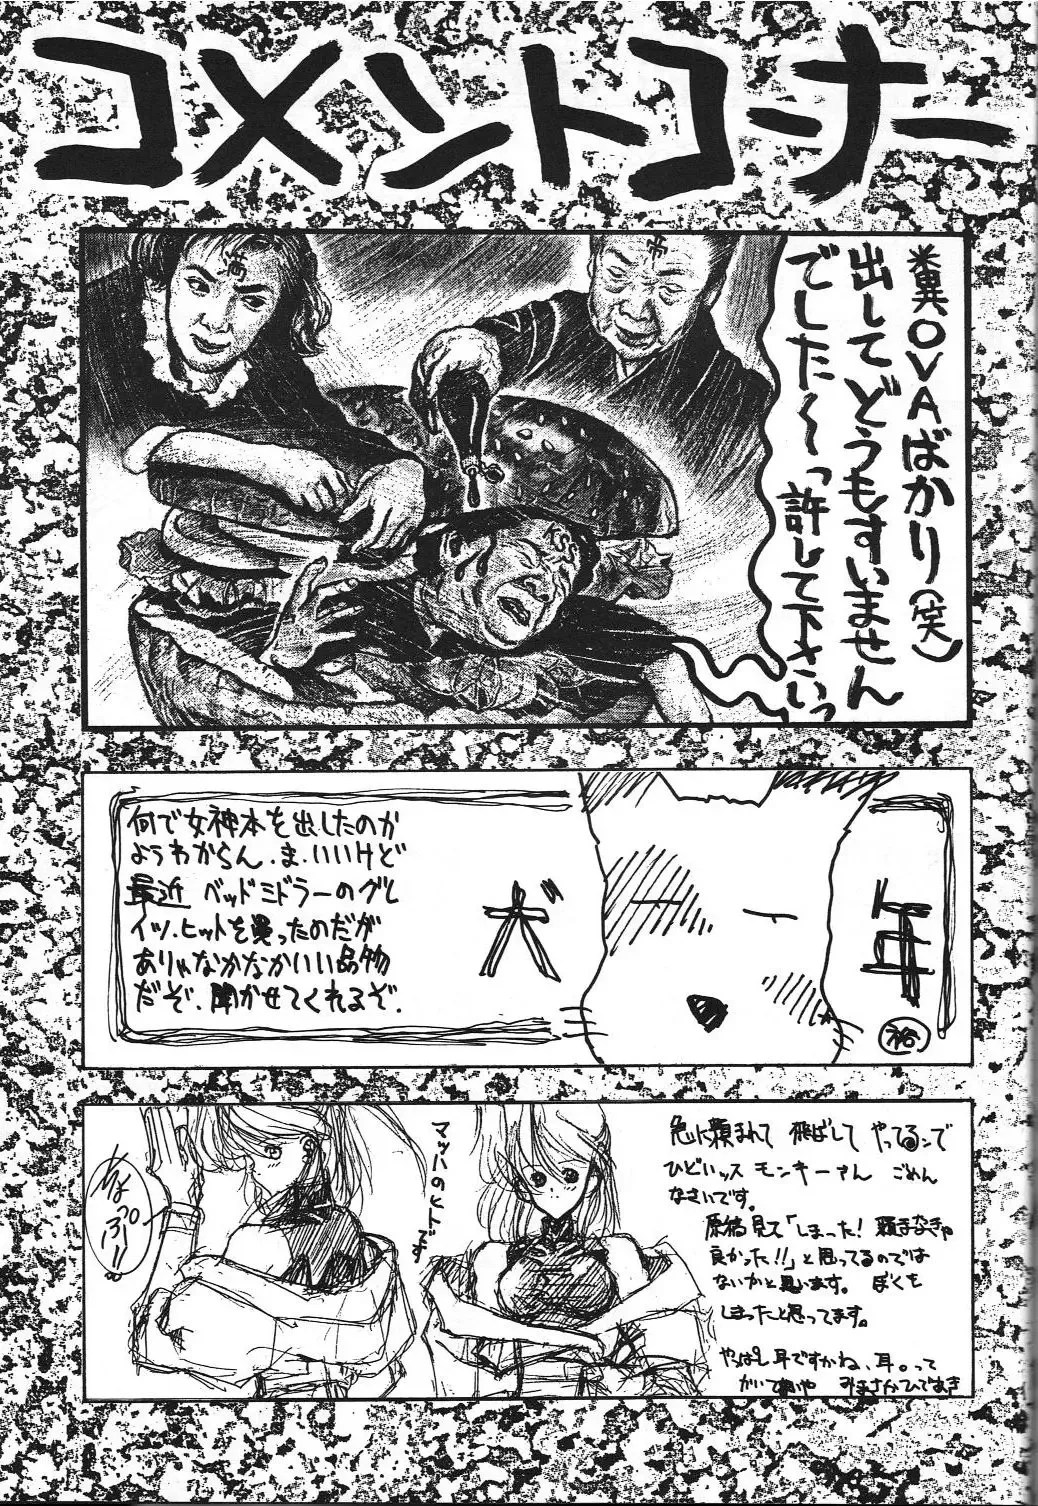 コメントコーナー
糞OVAばかり(笑)
出してどうもすいません
でした～～っ許して下さいっ
何で女神本を出したのか
ようわからん.ま.いいけど
最近 ベッドミドラーのグレ
イツ.ヒットを買ったのだが
ありゃなかなかいい品物
だぞ.聞かせてくれるぞ.
マッハのヒトです
急に頼まれて 飛ばして やってるンで
ひどいッス モンキーさん ごめん
なさいです。
原稿見て「しまった! 頼まなきゃ
良かった!!」と思ってるのでは
ないかと思います。 ぼくも
しまったと思ってます。
やっぱし耳ですかね、耳。って
みまさかひであき